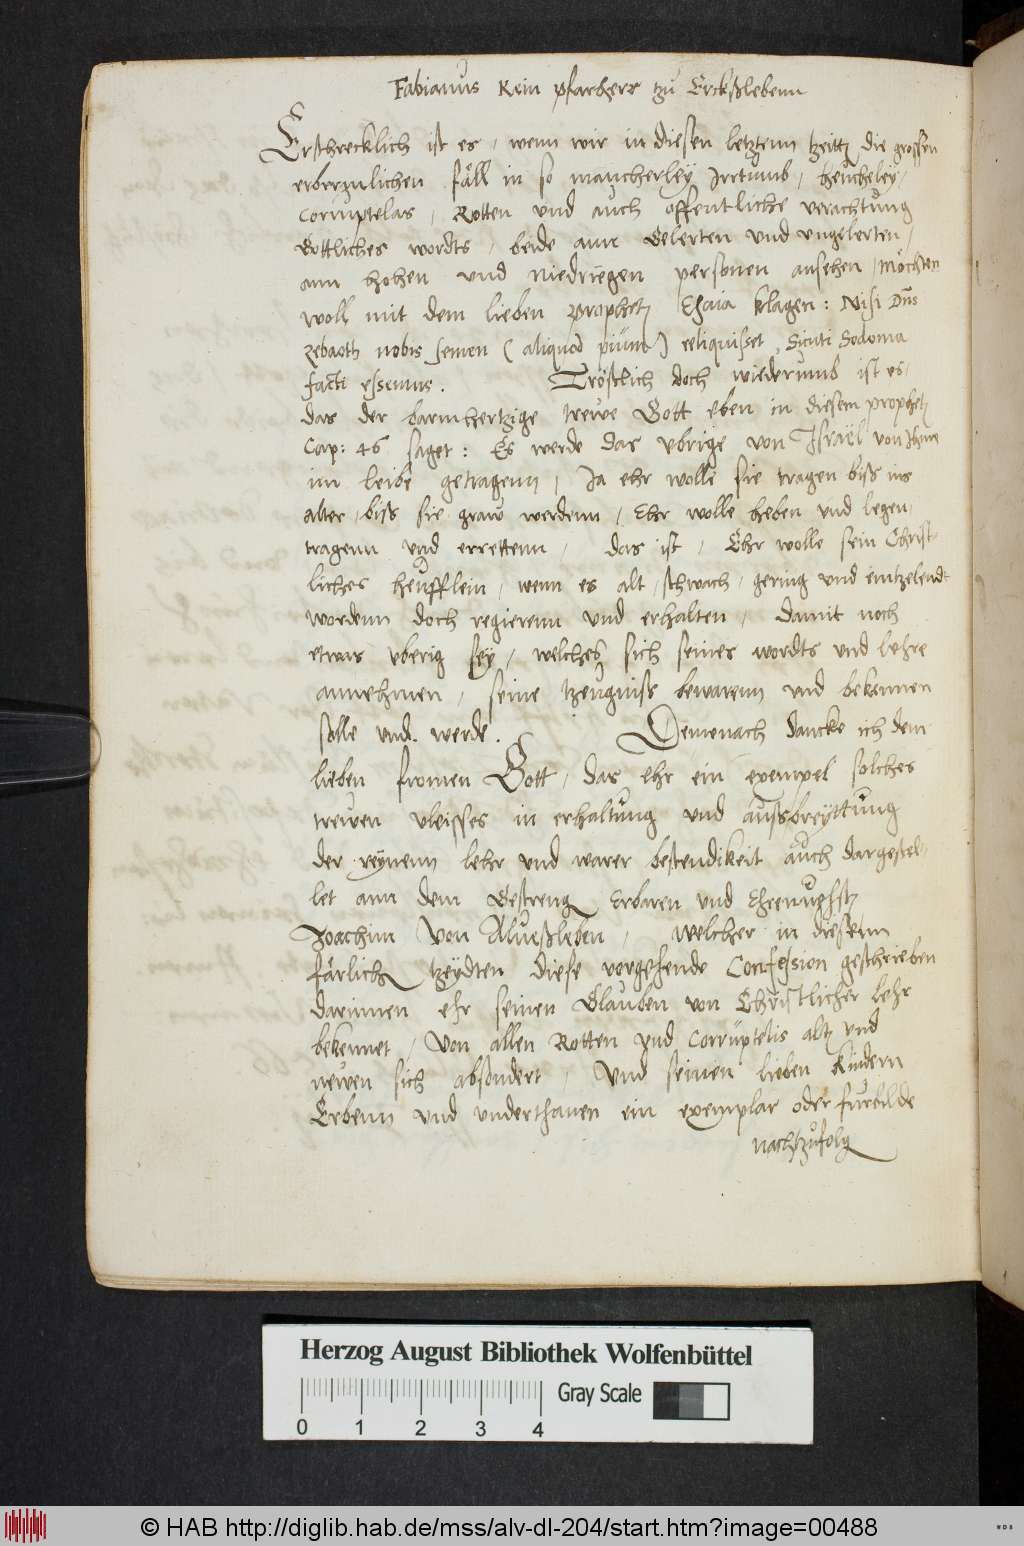 Fabianus Kein pfarherr tzu Erckßlebenn
Erschrecklich ist es, wenn wir in diesen letztenn tzeitt die grossen
erbermlichen fäll in so mancherley Irrtumb, heucheley,
Corruptelas, Rotten und auch offentliche verachtung
Gottliches wordts, beide ann Gelerten und ungelerten,
ann hohen und niedriegen personen ansehen, möchten
woll mit dem lieben prophet Esaia klagen: Nisi Dns
zebaoth nobis semen (aliquod pium) reliquisset, Sicuti Sodoma
facti essemus. Tröstlich doch wiederumb ist es,
das der barmhertzige trewe Gott eben in diesem prophet
Cap: 46 saget: Es werde das ubrige von Israel von Ihme
im leibe getragenn, Ja ehr wolle sie tragen biß ins
alter, biß sie graw werdenn, Ehr wolle heben und legen,
tragenn und errettenn, das ist, Ehr wolle sein Christ-
liches heufflein, wenn es alt, schwach, gering und eintzelend
wordenn doch regierenn und erhalten, damit noch
etwas uberig sey, welches sich seines wordts und lehre
annehmen, seine tzeugniß bewarenn und bekennen
solle und werde. Demenach dancke ich dem
lieben fromen Gott, das Ehr ein exempel solches
trewen vleisses in erhaltung und außbreyttung
der reynenn lehr und warer bestendikeit auch dargestel-
let ann dem Gestreng Erbaren und Ehrenvhest
Joachim von Alvenßleben, welcher in diesenn
färlich tzeydten diese vorgehende Confession geschrieben
darinnen ehr seinen Glauben von Christlicher lehr
bekennet, Von allen Rotten und Corruptelis alt und
newen sich absondert, Und seinen lieben Kindern
Erbenn und underthanen ein exemplar oder furbilde
nachzufolg
Herzog August Bibliothek Wolfenbüttel
Gray Scale
0 1 2 3 4
© HAB http://diglib.hab.de/mss/alv-dl-204/start.htm?image=00488